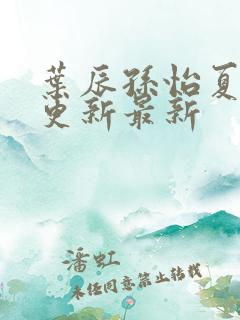 葉辰孫怡夏
更新最新
潘虹
未经同意禁止转载